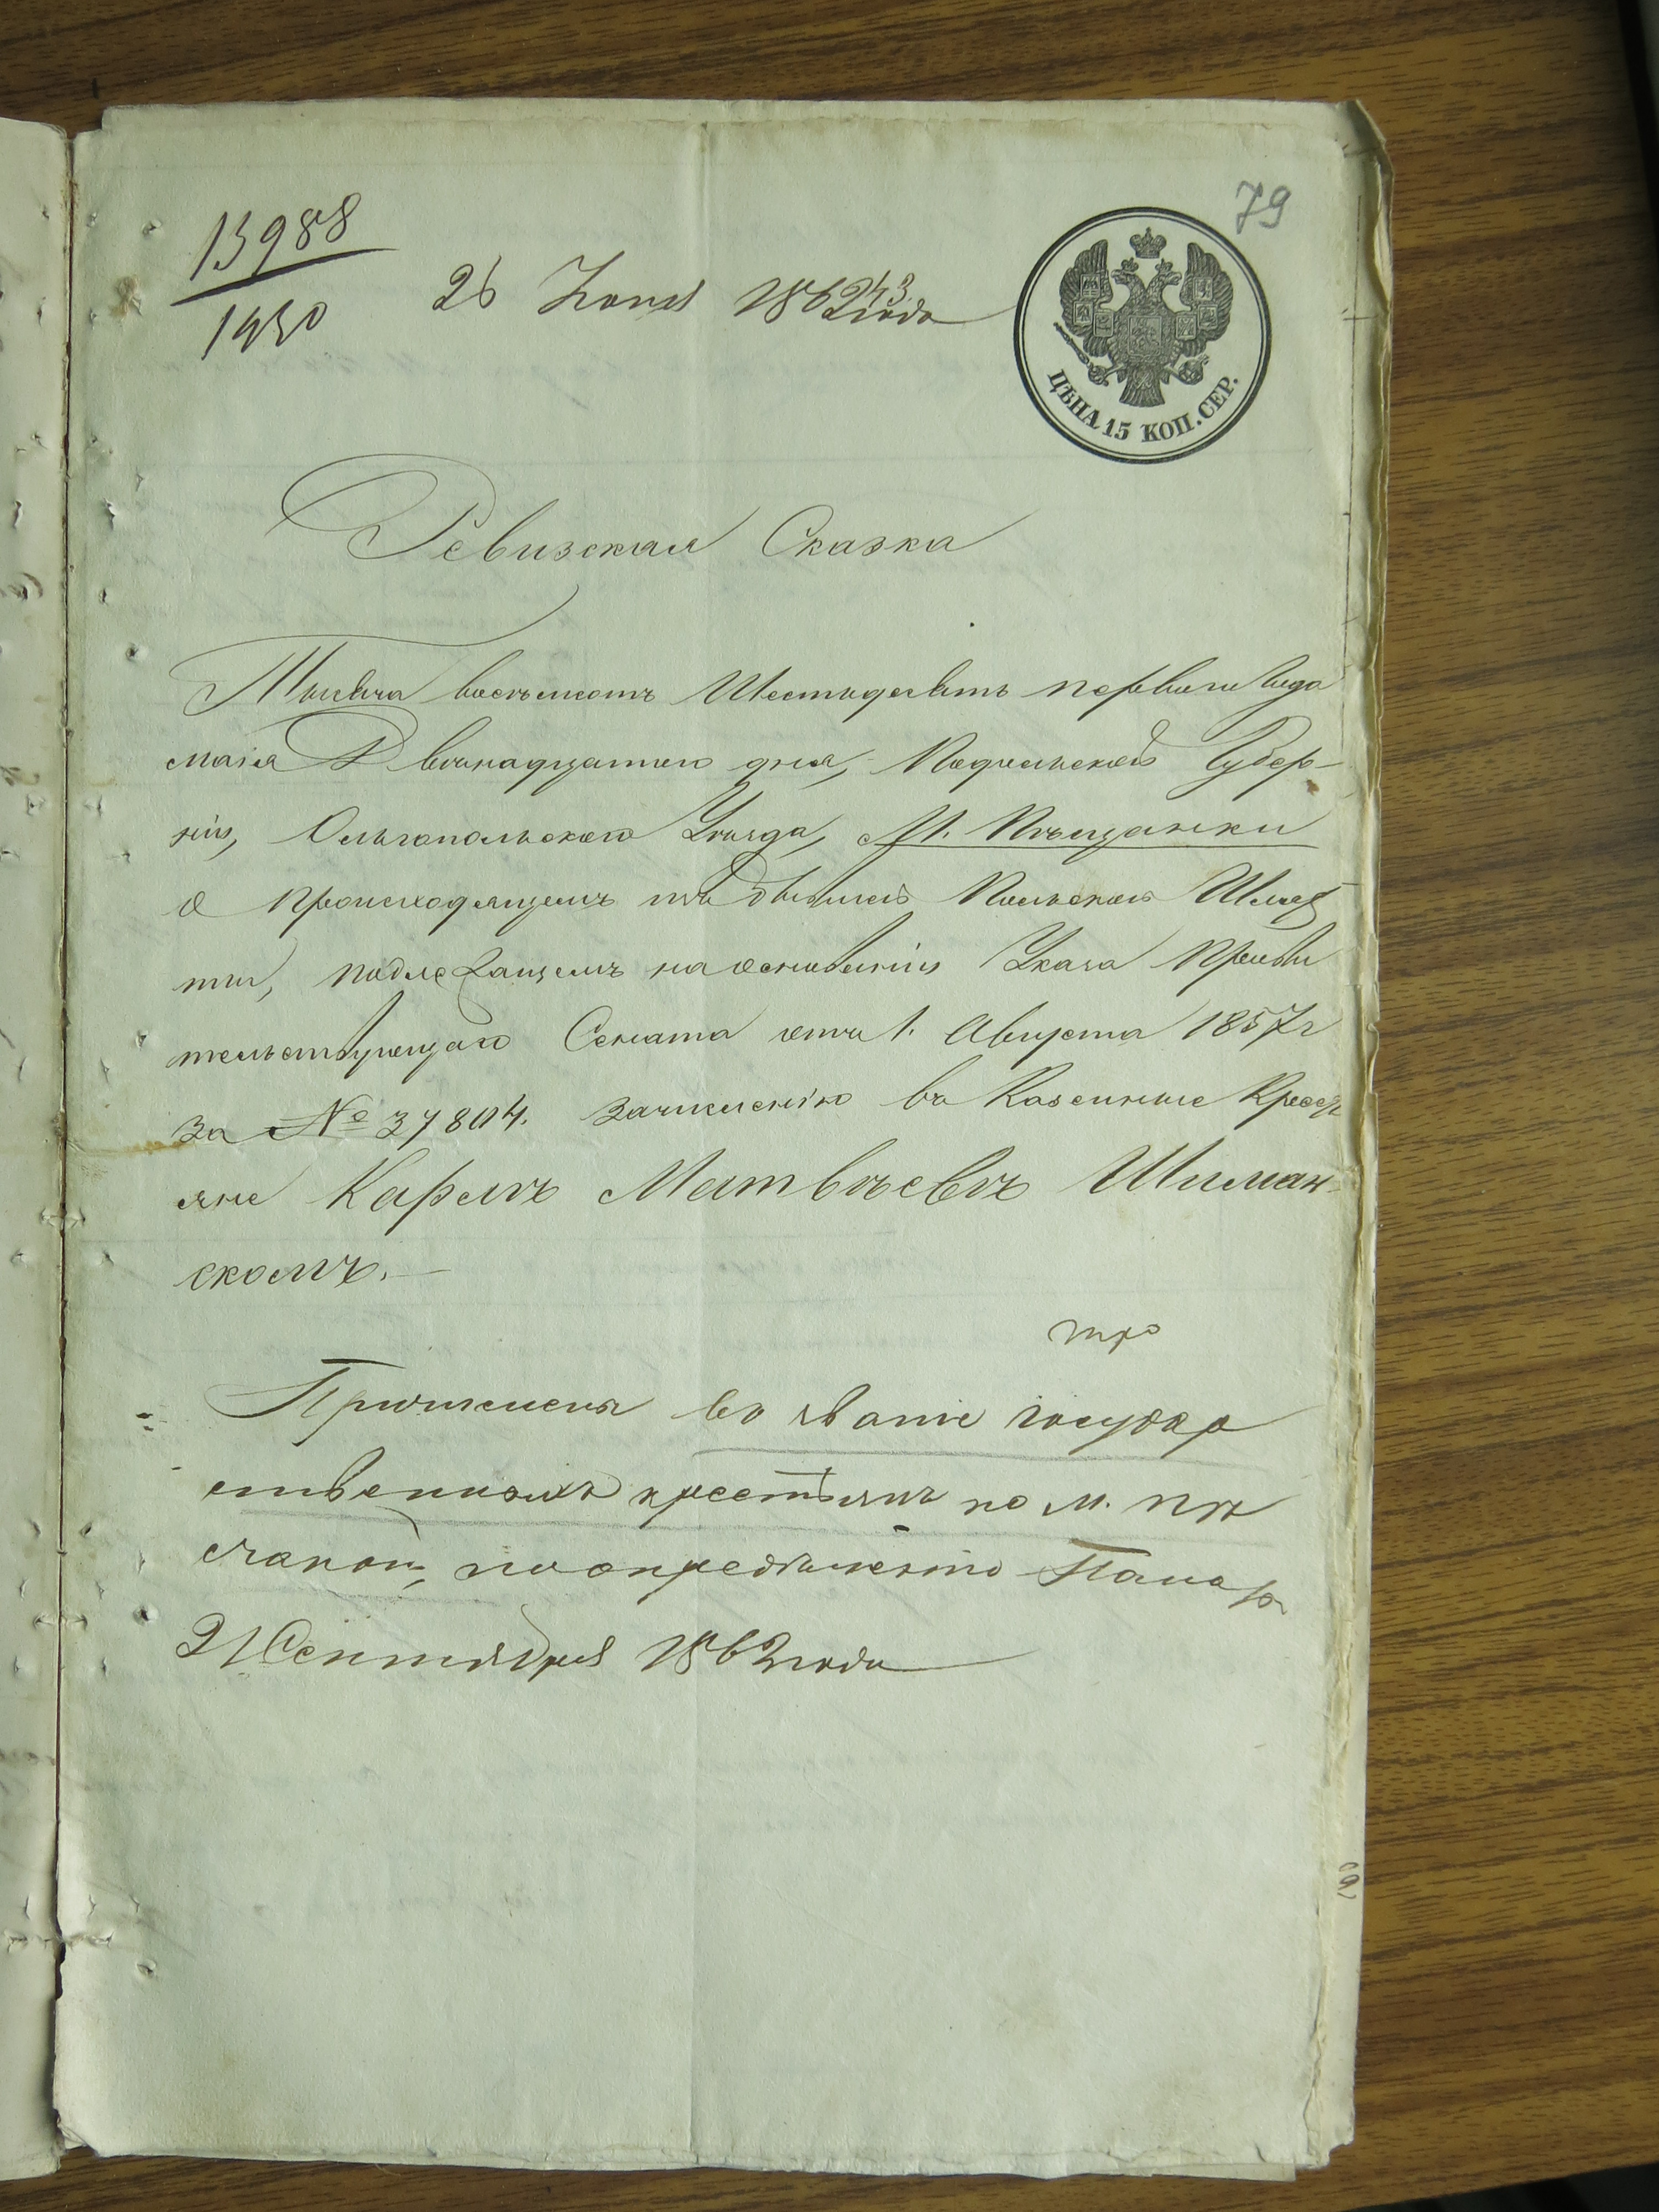 79
13988
1930
26 Іюня 1862 года
243
ЦѢНА 15 КОП. СЕР.
Ревизская Сказка
Тысяча восемьсотъ Шестьдесятъ перваго Года
маія Двенадцатого дня, Подольской Губер-
ніи, Ольгопольского Уѣзда, М. Пѣщанки
о происходящемъ изъ бывшей Польской Шлях
ты, подлежащемъ на основаніи Указа Прави
тельствующаго Сената отъ 1. Августа 1857 г
за № 37804. зачисленію въ Казенные Кресть
яне Карлъ Матвѣевъ Шиман-
скомъ.
Причислена въ званіе государ
ственныхъ крестьянъ по м. Пѣ
щанкѣ, по опредѣленію Палаты
21 Сентября 1862 года